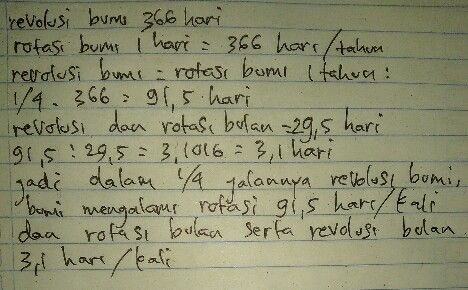 revolusi bumi 366 hari
rotasi bumi 1 hari = 366 hari/tahun
revolusi bumi = rotasi bumi 1 tahun :
1/4 . 366 = 91,5 hari
revolusi dan rotasi bulan = 29,5 hari
91,5 : 29,5 = 3,1016 = 3,1 hari
jadi dalam 1/4 jalannya revolusi bumi,
bumi mengalami rotasi 91,5 hari/kali
dan rotasi bulan serta revolusi bulan
3,1 hari/kali